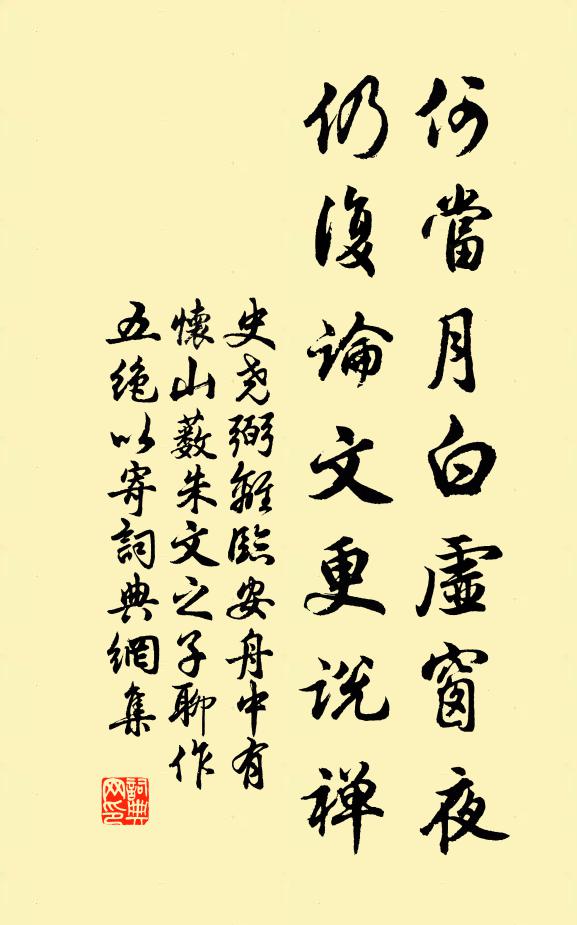 何當月白虛窗夜
仍復論文更説禅
史堯弼離臨安舟中有
懷山藪朱文之子聊作
五絶以寄詞典網集
詞典網印